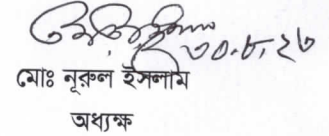 ৩০.৮.২৩
মোঃ নূরুল ইসলাম
অধ্যক্ষ